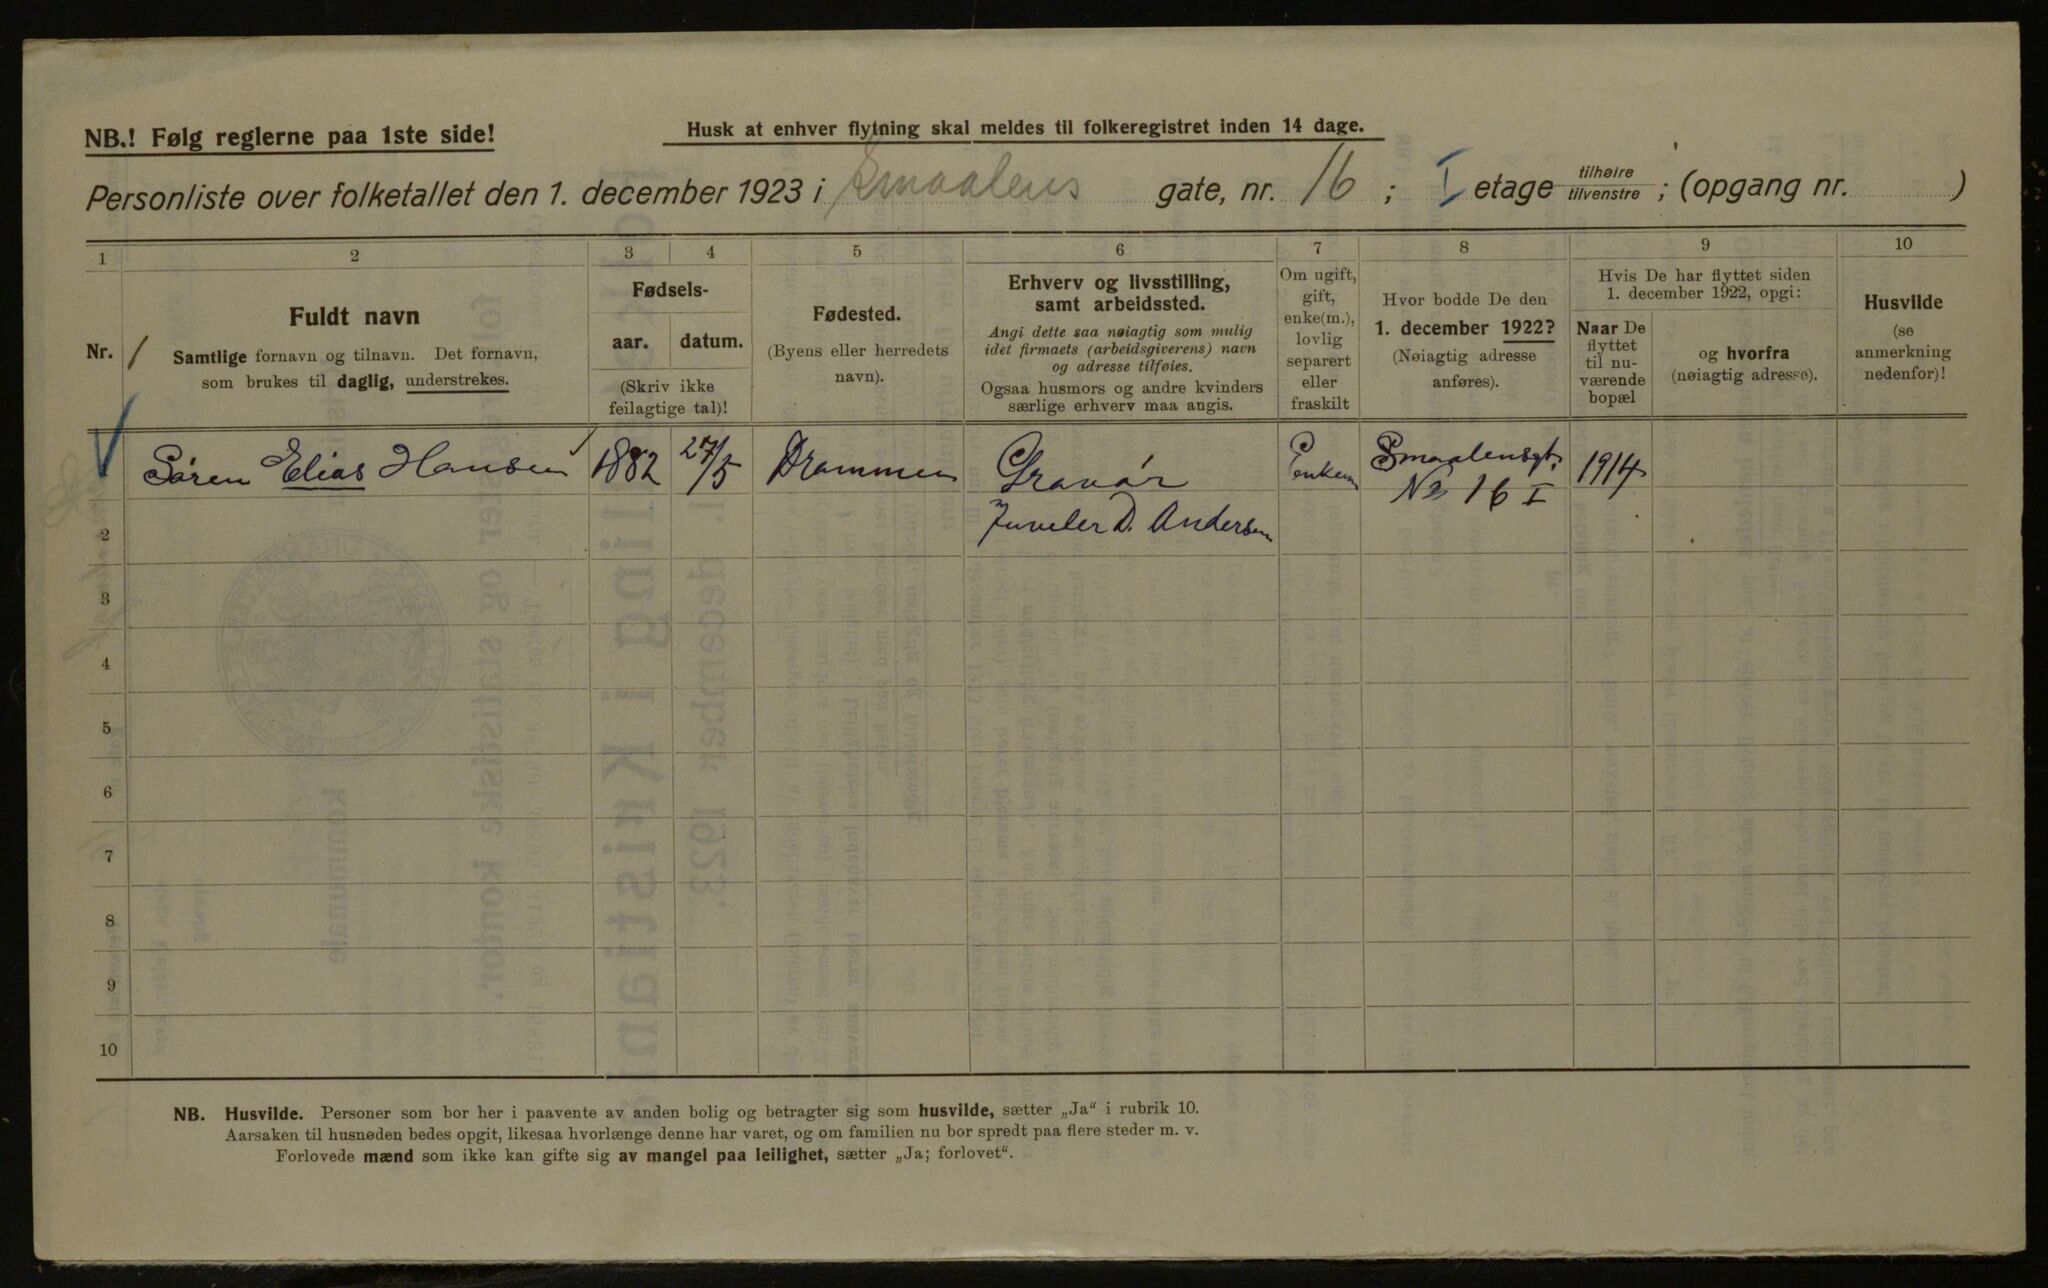 NB.! Følg reglerne paa 1ste side!
Husk at enhver flytning skal meldes til folkeregistret inden 14 dage.
Personliste over folketallet den 1. december 1923 i Smaalens gate, nr. 16; I etage tilhøire tilvenstre; (opgang nr. )
1 2 3 4 5 6 7 8 9 10
Nr. 1
Fuldt navn
Samtlige fornavn og tilnavn. Det fornavn,
som brukes til daglig, understrekes.
Fødsels-
aar. datum.
(Skriv ikke
feilagtige tal)!
Fødested.
(Byens eller herredets
navn).
Erhverv og livsstilling,
samt arbeidssted.
Angi dette saa nøiagtig som mulig
idet firmaets (arbeidsgiverens) navn
og adresse tilføies.
Ogsaa husmors og andre kvinders
særlige erhverv maa angis.
Om ugift,
gift,
enke(m.),
lovlig
separert
eller
fraskilt
Hvor bodde De den
1. december 1922?
(Nøiagtig adresse
anføres).
Hvis De har flyttet siden
1. december 1922, opgi:
Naar De
flyttet
til nu-
værende
bopæl
og hvorfra
(nøiagtig adresse).
Husvilde
(se
anmerkning
nedenfor)!
1 Søren Elias Hansen 1882 27/5 Drammen Gravør Enkem Smaalensgt. 1914
No 16 I
2 Juveler D. Andersen
3
4
5
6
7
8
9
10
NB. Husvilde. Personer som bor her i paavente av anden bolig og betragter sig som husvilde, sætter „Ja" i rubrik 10.
Aarsaken til husnøden bedes opgit, likesaa hvorlænge denne har varet, og om familien nu bor spredt paa flere steder m. v.
Forlovede mænd som ikke kan gifte sig av mangel paa leilighet, sætter „Ja; forlovet".